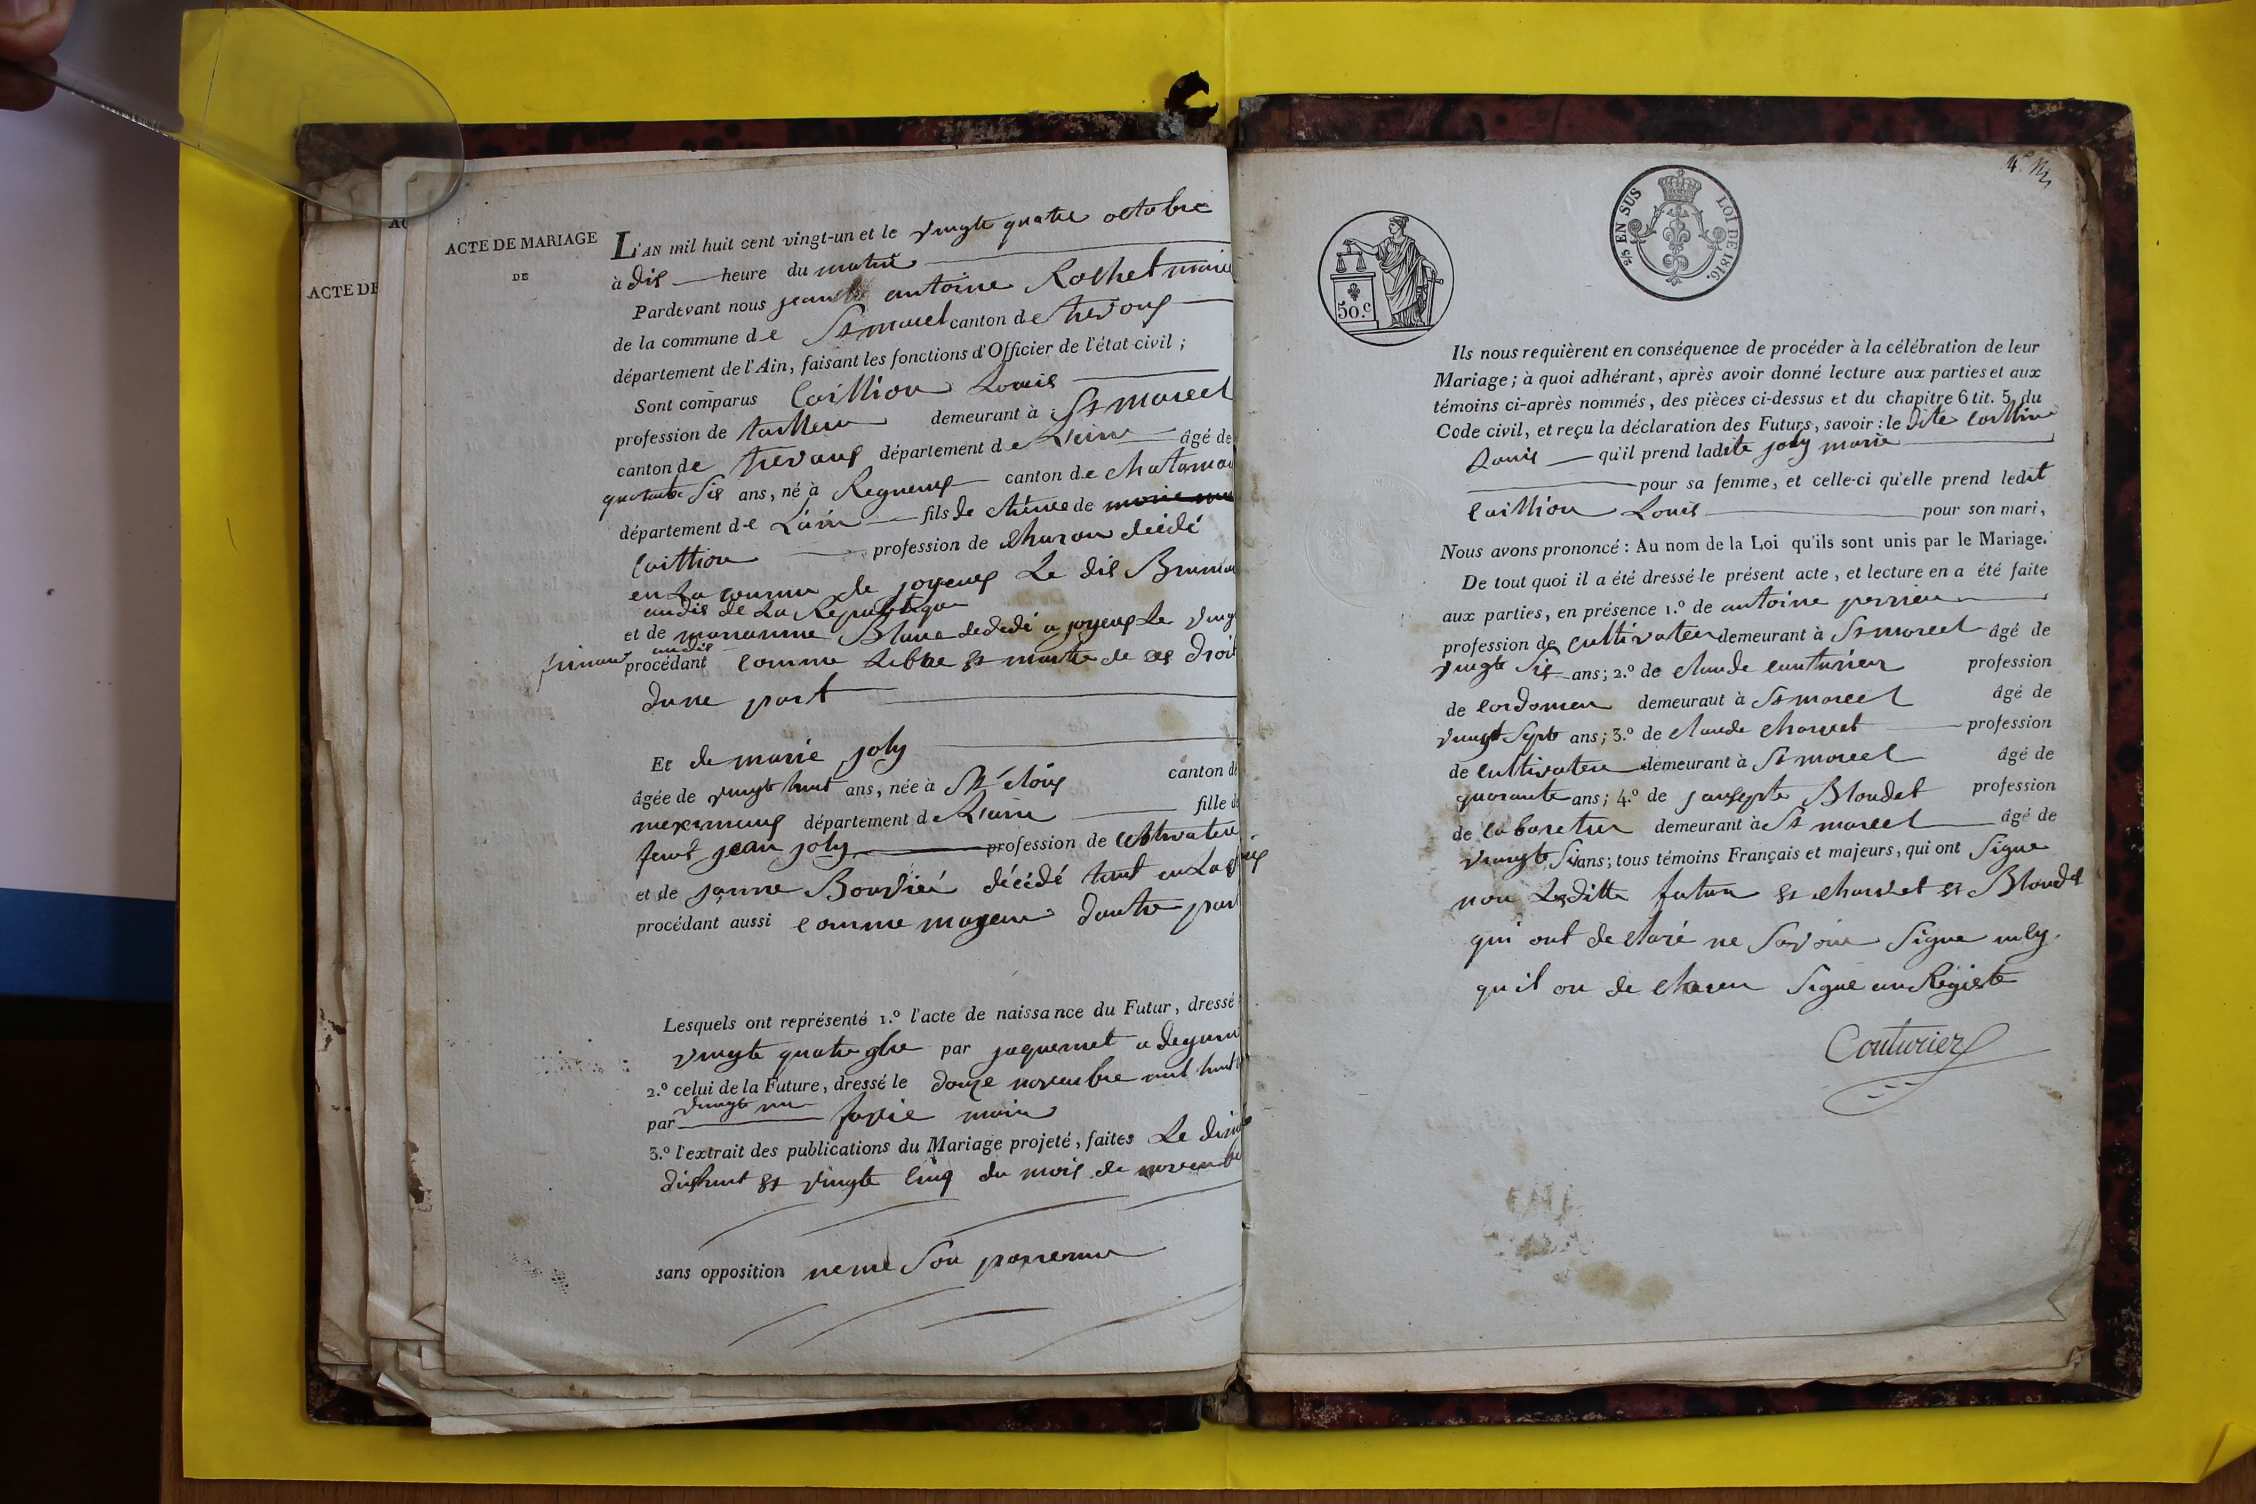 ACTE DE
AC
ACTE DE MARIAGE
DE
L'AN mil huit cent vingt-un et le vingte quatre octobre
à dis heure du matin
Pardevant nous antoine Rothet maire
de la commune de St marcel canton de trevoux
département de l'Ain, faisant les fonctions d'Officier de l'état civil ;
Sont comparus Caillion Louis
profession de tailleur demeurant à St marcel
canton de trevoux département de L'ain âgé de
quarante sis ans, né à Rigneux canton de chalamon
département de L'ain fils de de
Caillion profession de décédé
en La commune de joyeux Le dis
an dis de La Republique
et de marianne Blanc dedede a joyeux Le vingt
frimaire an dis
procédant comme Libre et maitre de ces droit
dune part
Et de marie joly
âgée de vingt huit ans, née à St éloix canton de
meximieux département de L'ain fille de
feut jean joly profession de cultivateur
et de janne Bouvier décédé tout
procédant aussi comme majeur dautre part
Lesquels ont représenté 1.º l'acte de naissance du Futur, dressé
vingte quatre par jaquemet
2.º celui de la Future, dressé le douze novembre mil huit
vingte un
par maire
3.º l'extrait des publications du Mariage projeté, faites Le
dishuit et vingte cinq du mois de novembre
sans opposition
4.e
2/5 EN SUS
LOI DE 1816.
50.c
Ils nous requièrent en conséquence de procéder à la célébration de leur
Mariage ; à quoi adhérant, après avoir donné lecture aux parties et aux
témoins ci-après nommés, des pièces ci-dessus et du chapitre 6 tit. 5, du
Code civil, et reçu la déclaration des Futurs, savoir : le dite Caillion
Louis qu'il prend ladite joly marie
pour sa femme, et celle-ci qu'elle prend ledit
Caillion Louis pour son mari,
Nous avons prononcé : Au nom de la Loi qu'ils sont unis par le Mariage.
De tout quoi il a été dressé le présent acte, et lecture en a été faite
aux parties, en présence 1.º de antoine
profession de cultivateur demeurant à St marcel âgé de
vingte sis ans ; 2.º de claude couturier profession
de cordonier demeurant à St marcel âgé de
vingt sept ans ; 3.º de claude charvet profession
de cultivateur demeurant à St marcel âgé de
quarante ans ; 4.º de Blondet profession
de demeurant à St marcel âgé de
vingte sis ans ; tous témoins Français et majeurs, qui ont signe
non Les ditte futur et charvet et Blondet
qui ont declaré ne savoir signe
qu il on de signé
Couturier